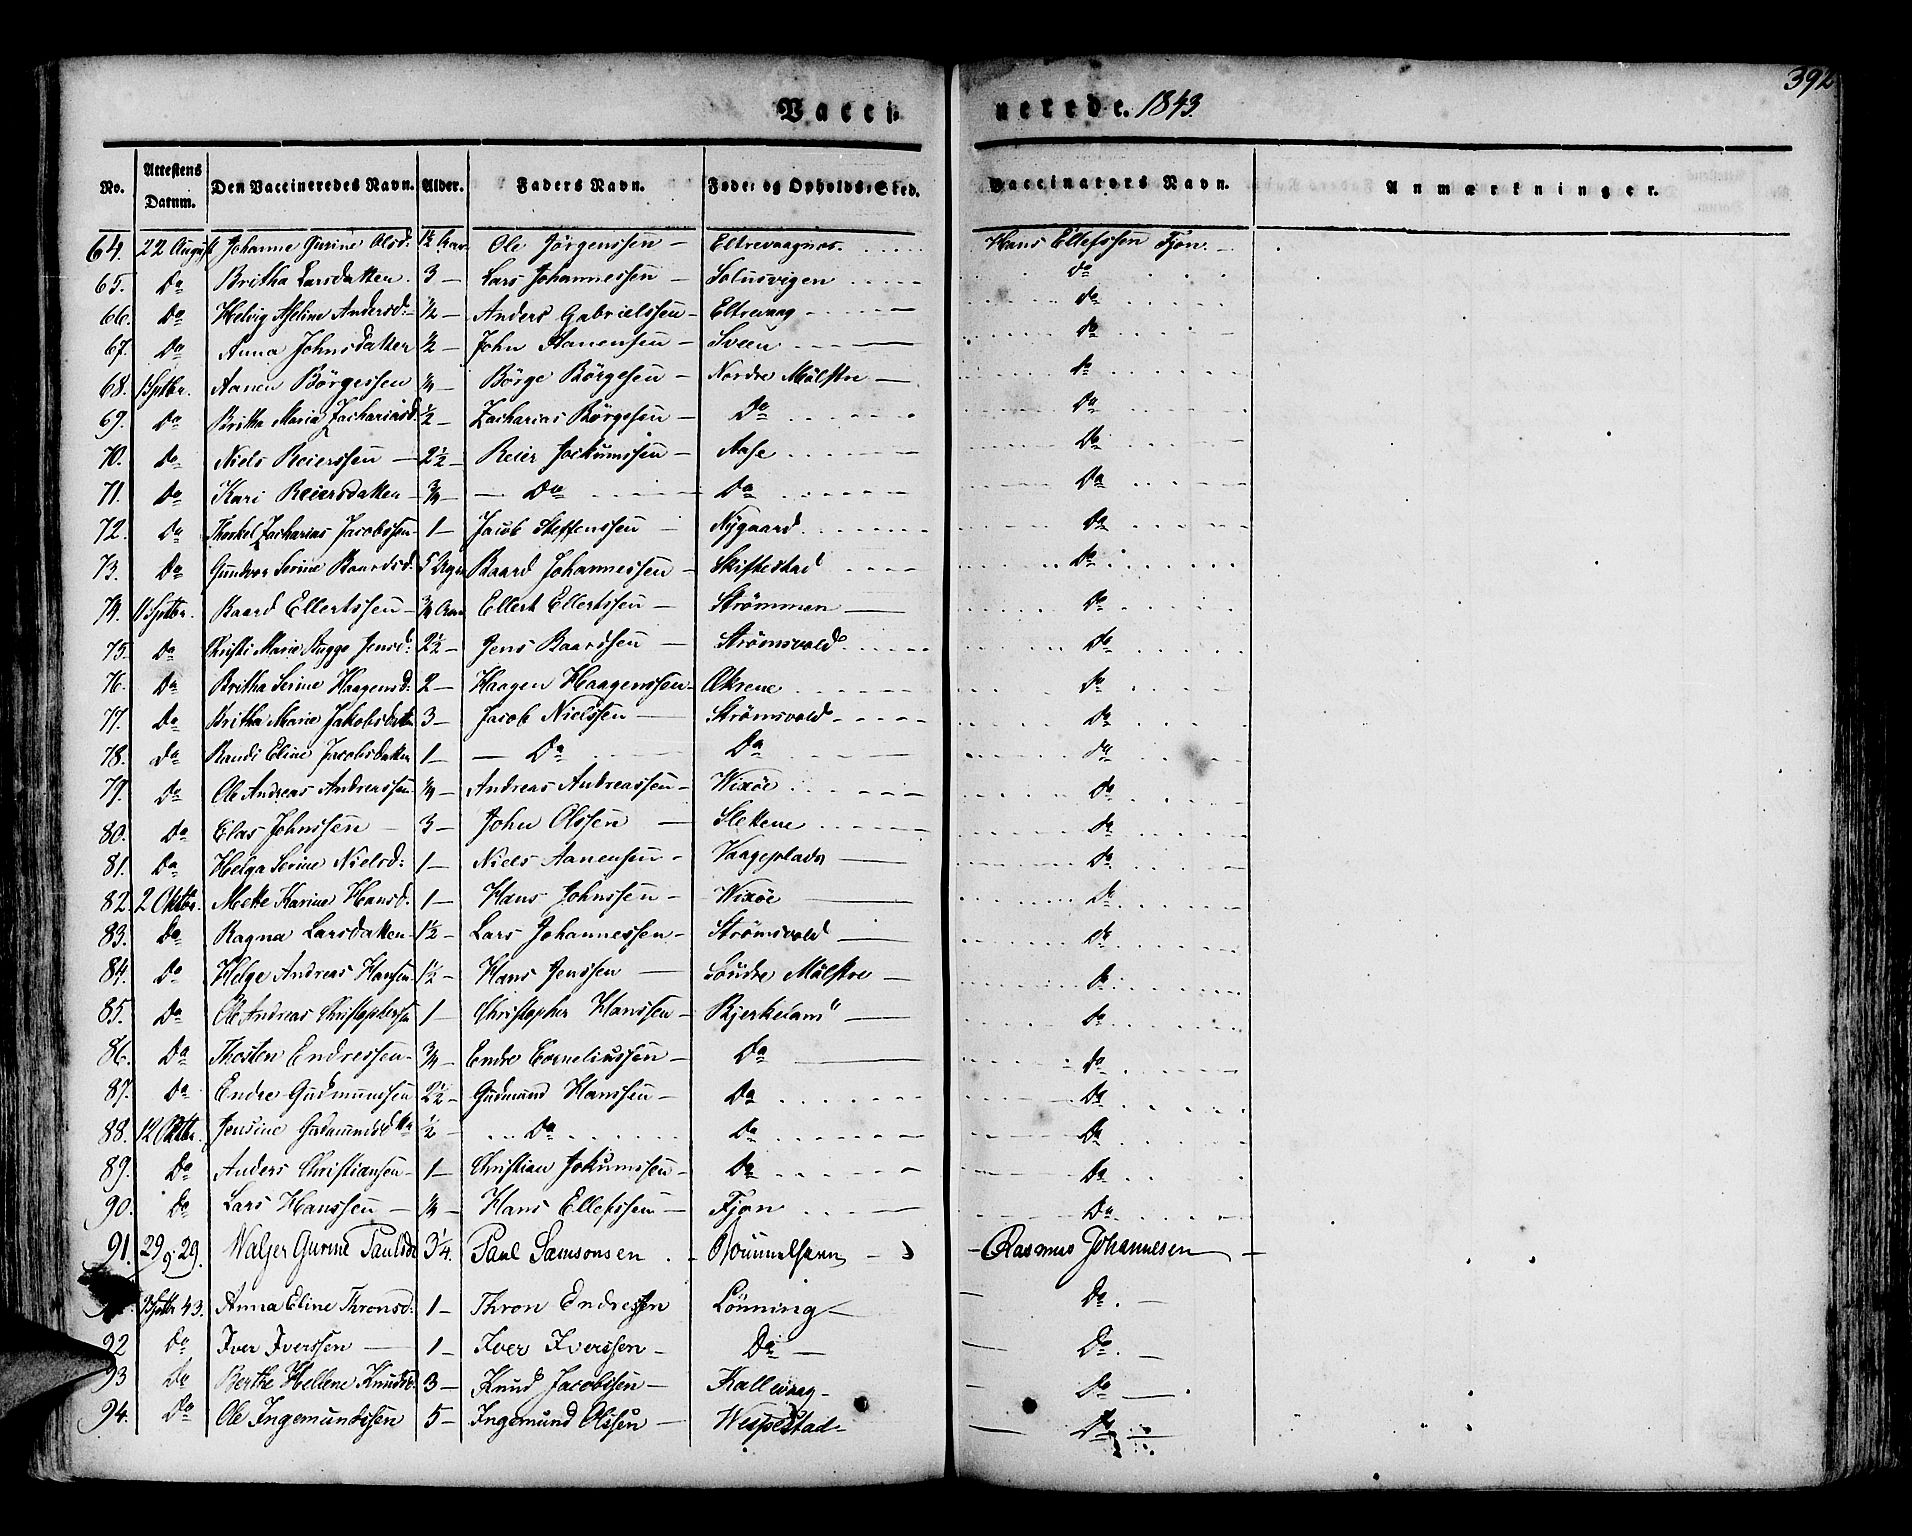 392
Vacci- nerede. 1843.
No. Attestens Datum. Den Vaccineredes Navn. Alder. Faders Navn. Føde- og Opholds-Sted. Vaccinators Navn. Anmærkninger.
64. 22 August Johanne Gurine Olsd: 1½ Aar Ole Jörgenssen - Eltrevaagnes. Hans Ellefssen Fjon.
65. Do Britha Larsdatten. 3 - Lars Johannessen - Solusvigen Do
66. Do Helvig Aseline Andersd: ½ - Anders Gabrielssen - Eltrevaag Do
67. Do Anna Johnsdatter ½ - John Aanensen - Sveen Do
68. 1 Sptbr. Aanen Börgessen ¼ - Börge Börgesen - Nordre Mölstre Do
69. Do Britha Maria Zachariasd. ½ - Zacharias Börgesen - Do Do
70. Do Niels Reierssen - 2½ - Reier Jockumssen - Aase Do
71. Do Kari Reiersdatten - ¾ - Do Do Do
72. Do Thorkel Zacharias Jacobssen 1 - Jacob Steffenssen - Nygaard Do
73. Do Gundvor Serine Baardsd. 5 Uger Baard Johannessen - Skiftestad Do
74. 11 Sptbr. Baard Ellertssen - ¾ Aar Ellert Ellertssen - Strömmen Do
75. Do Christi Marie Bugge Jensd: 2½ - Jens Baardsen - Strömsvold Do
76. Do Britha Serine Haagensd. 2 - Haagen Haagenssen - Økrene Do
77. Do Britha Marie Jakobsdatten 3 - Jacob Nielssen - Strömsvold Do
78. Do Randi Eline Jacobsdatten 1 - Do Do Do
79. Do Ole Andreas Andreassen ¼ - Andreas Andreassen - Wixöe Do
80. Do Elas Johnssen - 3 - John Olssen - Slekene Do
81. Do Helga Serine Nielsd: 1 - Niels Aanensen - Vaageplads Do
82. 2 Oktbr. Mette Karine Hansd. 1 - Hans Johnssen - Wixöe Do
83. Do Ragna Larsdatten 1½ - Lars Johannessen - Strömsvold Do
84. Do Helge Andreas Hansen 1½ - Hans Jenssen - Söndre Mölstre Do
85. Do Ole Andreas Christophersen 1 - Christopher Hanssen - Bjerkelam" Do
86. Do Thosten Endressen ¾ - Endre Corneliussen - Do Do
87. Do Endre Gudmunssen 2½ - Gudmund Hanssen - Do Do
88. 12 Oktbr. Jensine Gudmundsdtr ½ - Do Do Do
89. Do Anders Christiansen 1 - Christian Jokumssen - Do Do
90. Do Lars Hanssen - ¼ - Hans Ellefssen - Fjon Do
91. 29/9 29. Valjer Gurine Paulsdr 3¼. Paul Samsonsen Rasmus Johannesen
3 Sptbr 43. Anna Eline Thronsd: 1 - Thron Endresen Lönning - Do. -
92 Do Iver Iverssen - 1 - Iver Iverssen - Do - Do. -
93 Do Berthe Hellene Knudsd. 3 - Knud Jacobssen - Kallevaag - Do
94. Do Ole Ingemundssen 5 - Ingemund Olssen - Wespestad - Do